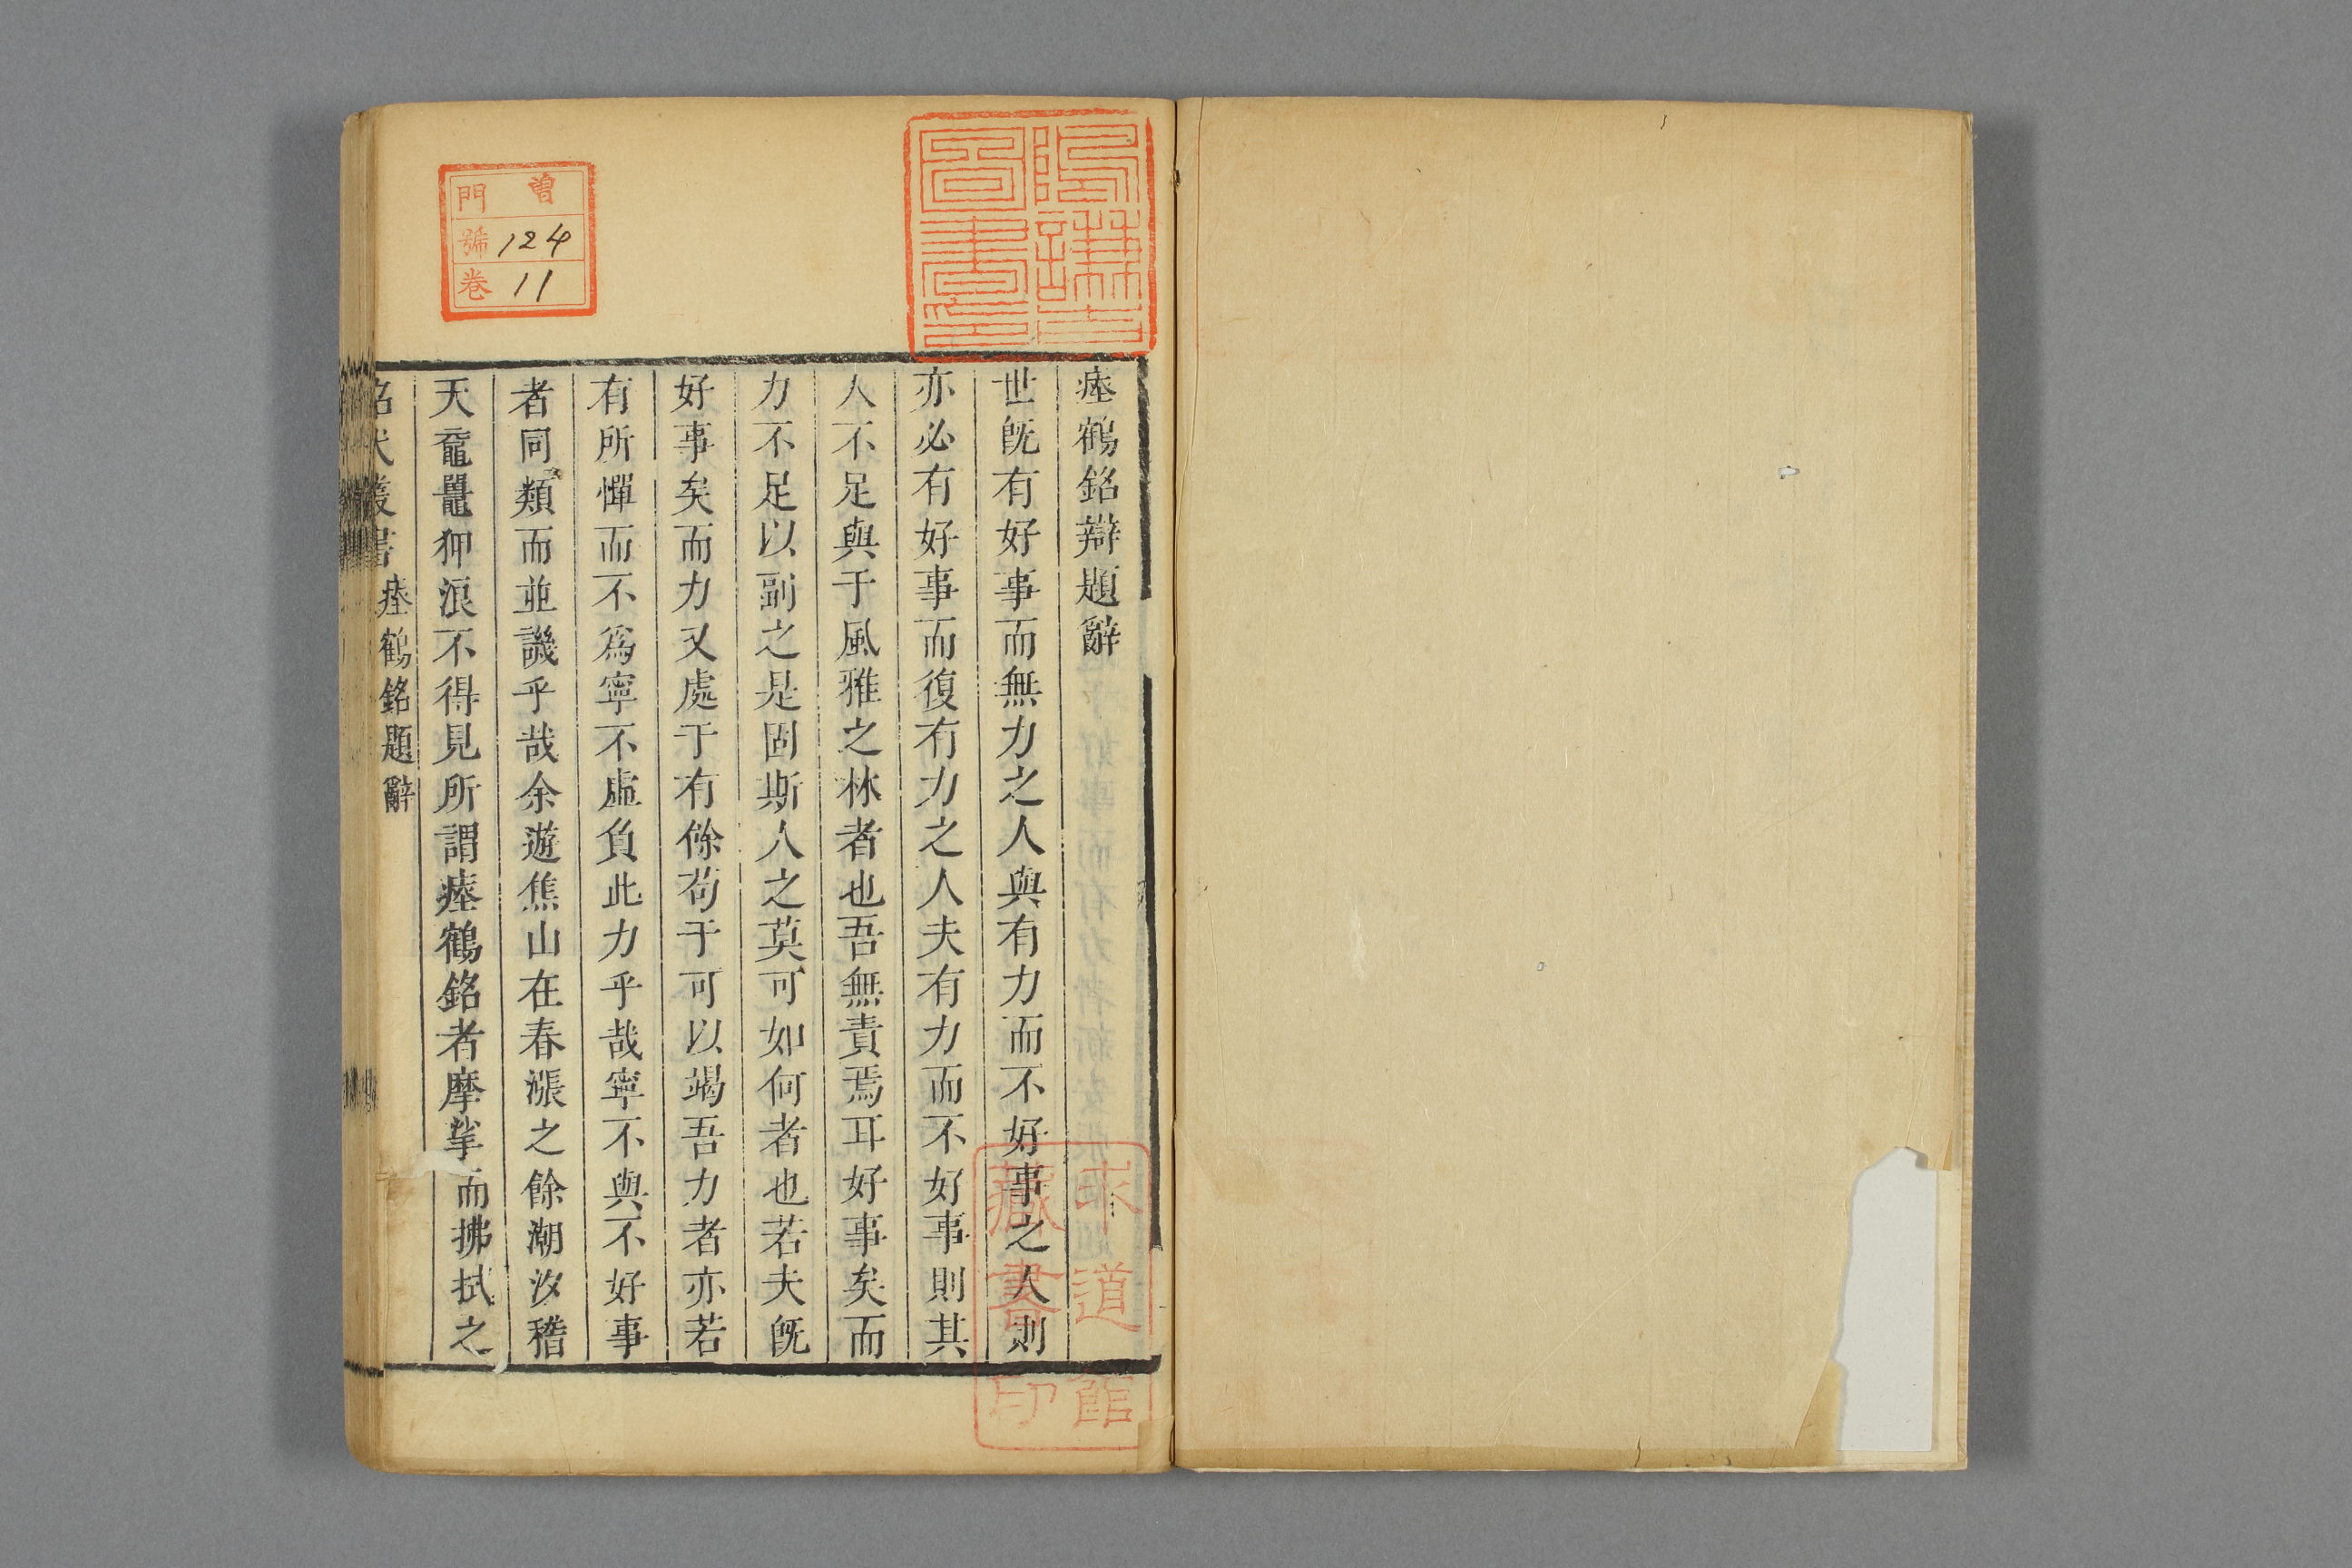 瘞鶴銘辯題辭
世旣有好事而無力之人與有力而不好事之人則
亦必有好事而復有力之人夫有力而不好事則其
人不足與于風雅之林者也吾無責焉耳好事矣而
力不足以副之是固斯人之莫可如何者也若夫旣
好事矣而力又處于有餘苟于可以竭吾力者亦若
有所憚而不爲寧不虛負此力乎哉寧不與不好事
者同類而並譏乎哉余遊焦山在春漲之餘潮汐稽
天黿鼉狎浪不得見所謂瘞鶴銘者摩挲而拂拭之
昭代叢書 瘞鶴銘題辭
曾門
號 124
卷 11
陽謙吉圖書
道館藏書印